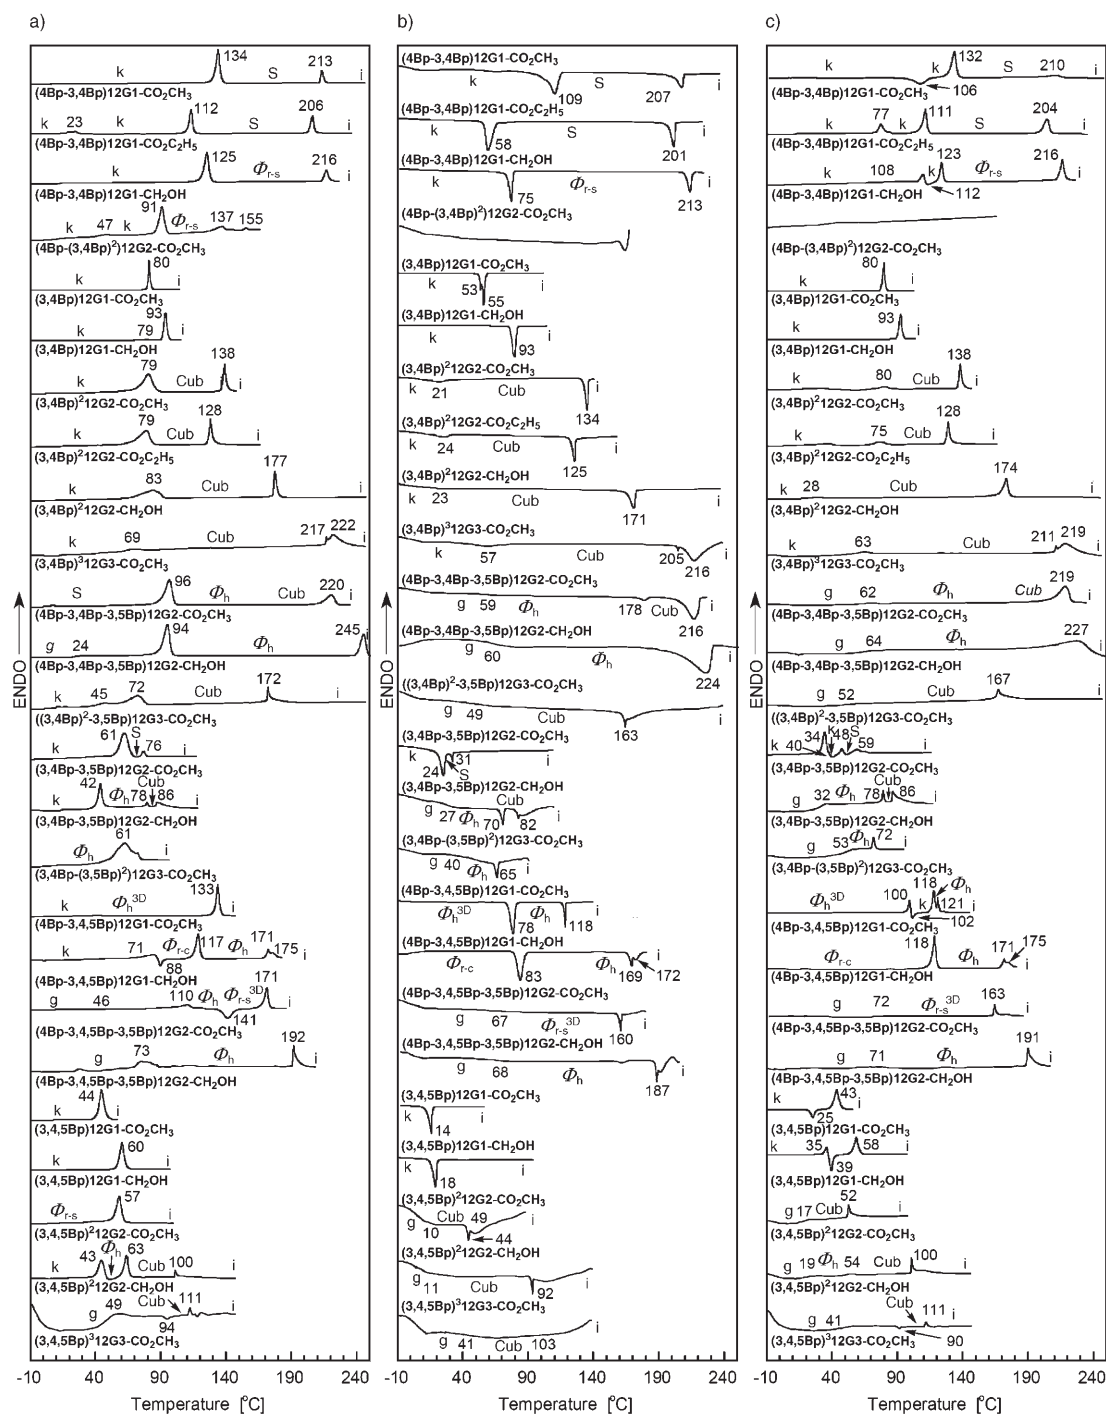 a)
ENDO
k 134 S 213 i
(4Bp-3,4Bp)12G1-CO₂CH₃
k 23 k 112 S 206 i
(4Bp-3,4Bp)12G1-CO₂C₂H₅
k 125 Φr-s 216 i
(4Bp-3,4Bp)12G1-CH₂OH
k 47 k 91 Φr-s 137 155 i
(4Bp-(3,4Bp)²)12G2-CO₂CH₃
k 80 i
(3,4Bp)12G1-CO₂CH₃
k 79 93 i
(3,4Bp)12G1-CH₂OH
k 79 Cub 138 i
(3,4Bp)²12G2-CO₂CH₃
k 79 Cub 128 i
(3,4Bp)²12G2-CO₂C₂H₅
k 83 Cub 177 i
(3,4Bp)²12G2-CH₂OH
k 69 Cub 217 222 i
(3,4Bp)³12G3-CO₂CH₃
S 96 Φh Cub 220 i
(4Bp-3,4Bp-3,5Bp)12G2-CO₂CH₃
g 24 94 Φh 245 i
(4Bp-3,4Bp-3,5Bp)12G2-CH₂OH
k 45 72 Cub 172 i
((3,4Bp)²-3,5Bp)12G3-CO₂CH₃
k 61 S 76 i
(3,4Bp-3,5Bp)12G2-CO₂CH₃
k 42 Φh 78 Cub 86 i
(3,4Bp-3,5Bp)12G2-CH₂OH
Φh 61 i
(3,4Bp-(3,5Bp)²)12G3-CO₂CH₃
k Φh³ᴰ 133 i
(4Bp-3,4,5Bp)12G1-CO₂CH₃
k 71 88 Φr-c 117 Φh 171 175 i
(4Bp-3,4,5Bp)12G1-CH₂OH
g 46 110 Φh 141 Φr-s³ᴰ 171 i
(4Bp-3,4,5Bp-3,5Bp)12G2-CO₂CH₃
g 73 Φh 192 i
(4Bp-3,4,5Bp-3,5Bp)12G2-CH₂OH
k 44 i
(3,4,5Bp)12G1-CO₂CH₃
k 60 i
(3,4,5Bp)12G1-CH₂OH
Φr-s 57 i
(3,4,5Bp)²12G2-CO₂CH₃
k 43 Φh 63 Cub 100 i
(3,4,5Bp)²12G2-CH₂OH
g 49 94 Cub 111 i
(3,4,5Bp)³12G3-CO₂CH₃
-10 40 90 140 190 240
Temperature [°C]
b)
(4Bp-3,4Bp)12G1-CO₂CH₃
k 109 S 207 i
(4Bp-3,4Bp)12G1-CO₂C₂H₅
k 58 S 201 i
(4Bp-3,4Bp)12G1-CH₂OH
k 75 Φr-s 213 i
(4Bp-(3,4Bp)²)12G2-CO₂CH₃
(3,4Bp)12G1-CO₂CH₃
k 53 55 i
(3,4Bp)12G1-CH₂OH
k 93 i
(3,4Bp)²12G2-CO₂CH₃
k 21 Cub 134 i
(3,4Bp)²12G2-CO₂C₂H₅
k 24 Cub 125 i
(3,4Bp)²12G2-CH₂OH
k 23 Cub 171 i
(3,4Bp)³12G3-CO₂CH₃
k 57 Cub 205 216 i
(4Bp-3,4Bp-3,5Bp)12G2-CO₂CH₃
g 59 Φh 178 Cub 216 i
(4Bp-3,4Bp-3,5Bp)12G2-CH₂OH
g 60 Φh 224 i
((3,4Bp)²-3,5Bp)12G3-CO₂CH₃
g 49 Cub 163 i
(3,4Bp-3,5Bp)12G2-CO₂CH₃
k 24 S 31 i
(3,4Bp-3,5Bp)12G2-CH₂OH
g 27 Φh 70 Cub 82 i
(3,4Bp-(3,5Bp)²)12G3-CO₂CH₃
g 40 Φh 65 i
(4Bp-3,4,5Bp)12G1-CO₂CH₃
Φh³ᴰ 78 Φh 118 i
(4Bp-3,4,5Bp)12G1-CH₂OH
Φr-c 83 Φh 169 172 i
(4Bp-3,4,5Bp-3,5Bp)12G2-CO₂CH₃
g 67 Φr-s³ᴰ 160 i
(4Bp-3,4,5Bp-3,5Bp)12G2-CH₂OH
g 68 Φh 187 i
(3,4,5Bp)12G1-CO₂CH₃
k 14 i
(3,4,5Bp)12G1-CH₂OH
k 18 i
(3,4,5Bp)²12G2-CO₂CH₃
g 10 Cub 44 49 i
(3,4,5Bp)²12G2-CH₂OH
g 11 Cub 92 i
(3,4,5Bp)³12G3-CO₂CH₃
g 41 Cub 103 i
-10 40 90 140 190 240
Temperature [°C]
c)
ENDO
k 106 k 132 S 210 i
(4Bp-3,4Bp)12G1-CO₂CH₃
k 77 k 111 S 204 i
(4Bp-3,4Bp)12G1-CO₂C₂H₅
k 108 112 k 123 Φr-s 216 i
(4Bp-3,4Bp)12G1-CH₂OH
(4Bp-(3,4Bp)²)12G2-CO₂CH₃
k 80 i
(3,4Bp)12G1-CO₂CH₃
k 93 i
(3,4Bp)12G1-CH₂OH
k 80 Cub 138 i
(3,4Bp)²12G2-CO₂CH₃
k 75 Cub 128 i
(3,4Bp)²12G2-CO₂C₂H₅
k 28 Cub 174 i
(3,4Bp)²12G2-CH₂OH
k 63 Cub 211 219 i
(3,4Bp)³12G3-CO₂CH₃
g 62 Φh Cub 219 i
(4Bp-3,4Bp-3,5Bp)12G2-CO₂CH₃
g 64 Φh 227 i
(4Bp-3,4Bp-3,5Bp)12G2-CH₂OH
g 52 Cub 167 i
((3,4Bp)²-3,5Bp)12G3-CO₂CH₃
k 34 40 k 48 S 59 i
(3,4Bp-3,5Bp)12G2-CO₂CH₃
g 32 Φh 78 Cub 86 i
(3,4Bp-3,5Bp)12G2-CH₂OH
g 53 Φh 72 i
(3,4Bp-(3,5Bp)²)12G3-CO₂CH₃
Φh³ᴰ 100 102 k 118 Φh 121 i
(4Bp-3,4,5Bp)12G1-CO₂CH₃
Φr-c 118 Φh 171 175 i
(4Bp-3,4,5Bp)12G1-CH₂OH
g 72 Φr-s³ᴰ 163 i
(4Bp-3,4,5Bp-3,5Bp)12G2-CO₂CH₃
g 71 Φh 191 i
(4Bp-3,4,5Bp-3,5Bp)12G2-CH₂OH
k 25 43 i
(3,4,5Bp)12G1-CO₂CH₃
k 35 39 58 i
(3,4,5Bp)12G1-CH₂OH
g 17 Cub 52 i
(3,4,5Bp)²12G2-CO₂CH₃
g 19 Φh 54 Cub 100 i
(3,4,5Bp)²12G2-CH₂OH
g 41 90 Cub 111 i
(3,4,5Bp)³12G3-CO₂CH₃
-10 40 90 140 190 240
Temperature [°C]